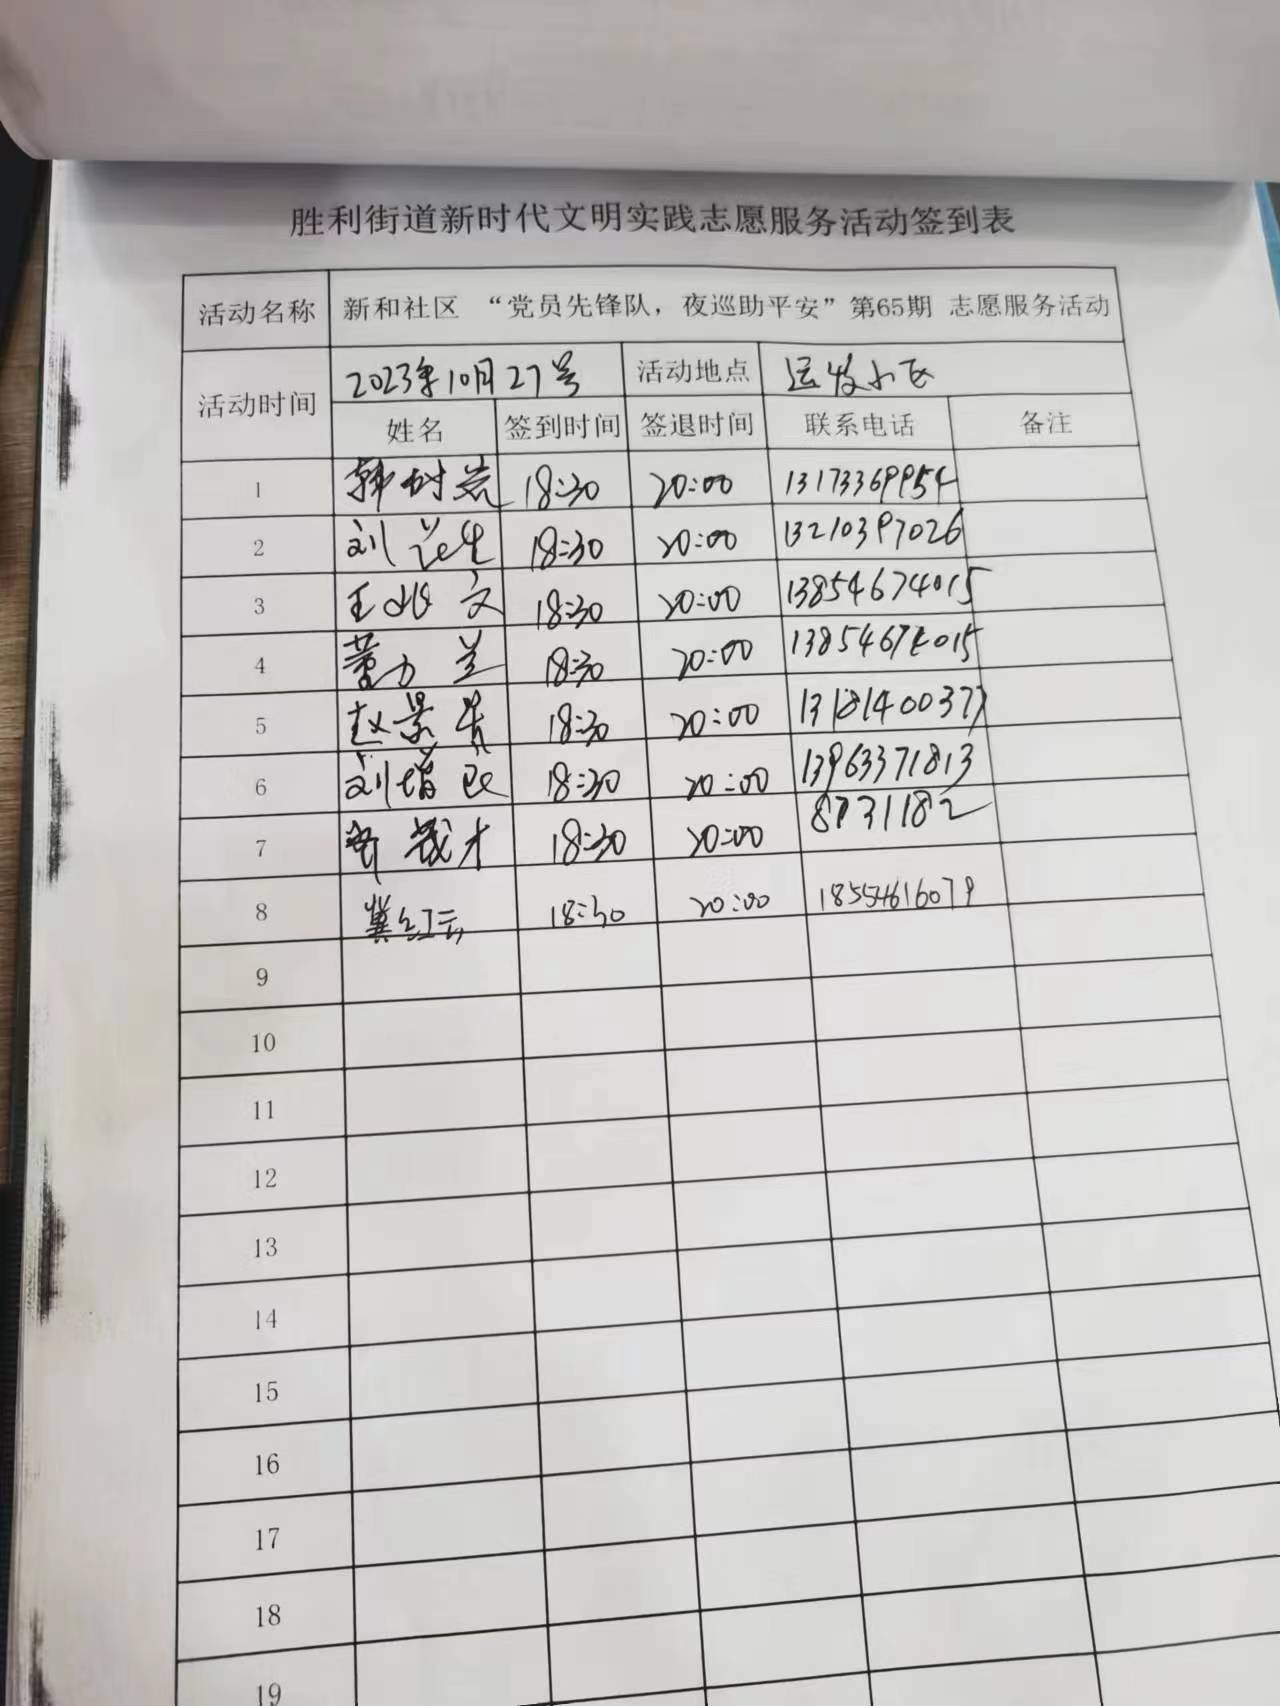 胜利街道新时代文明实践志愿服务活动签到表
活动名称 新和社区 “党员先锋队，夜巡助平安”第65期 志愿服务活动
活动时间 2023年10月27号 活动地点 运发小区
姓名 签到时间 签退时间 联系电话 备注
1 韩树 18:30 20:00 13173369954
2 刘 18:30 20:00 13210397026
3 王 文 18:30 20:00 13854674015
4 董力兰 18:30 20:00 13854674015
5 赵景 18:30 20:00 13181400377
6 刘增 18:30 20:00 13963371813
7 18:30 20:00 8731182
8 冀红云 18:30 20:00 18554616079
9
10
11
12
13
14
15
16
17
18
19